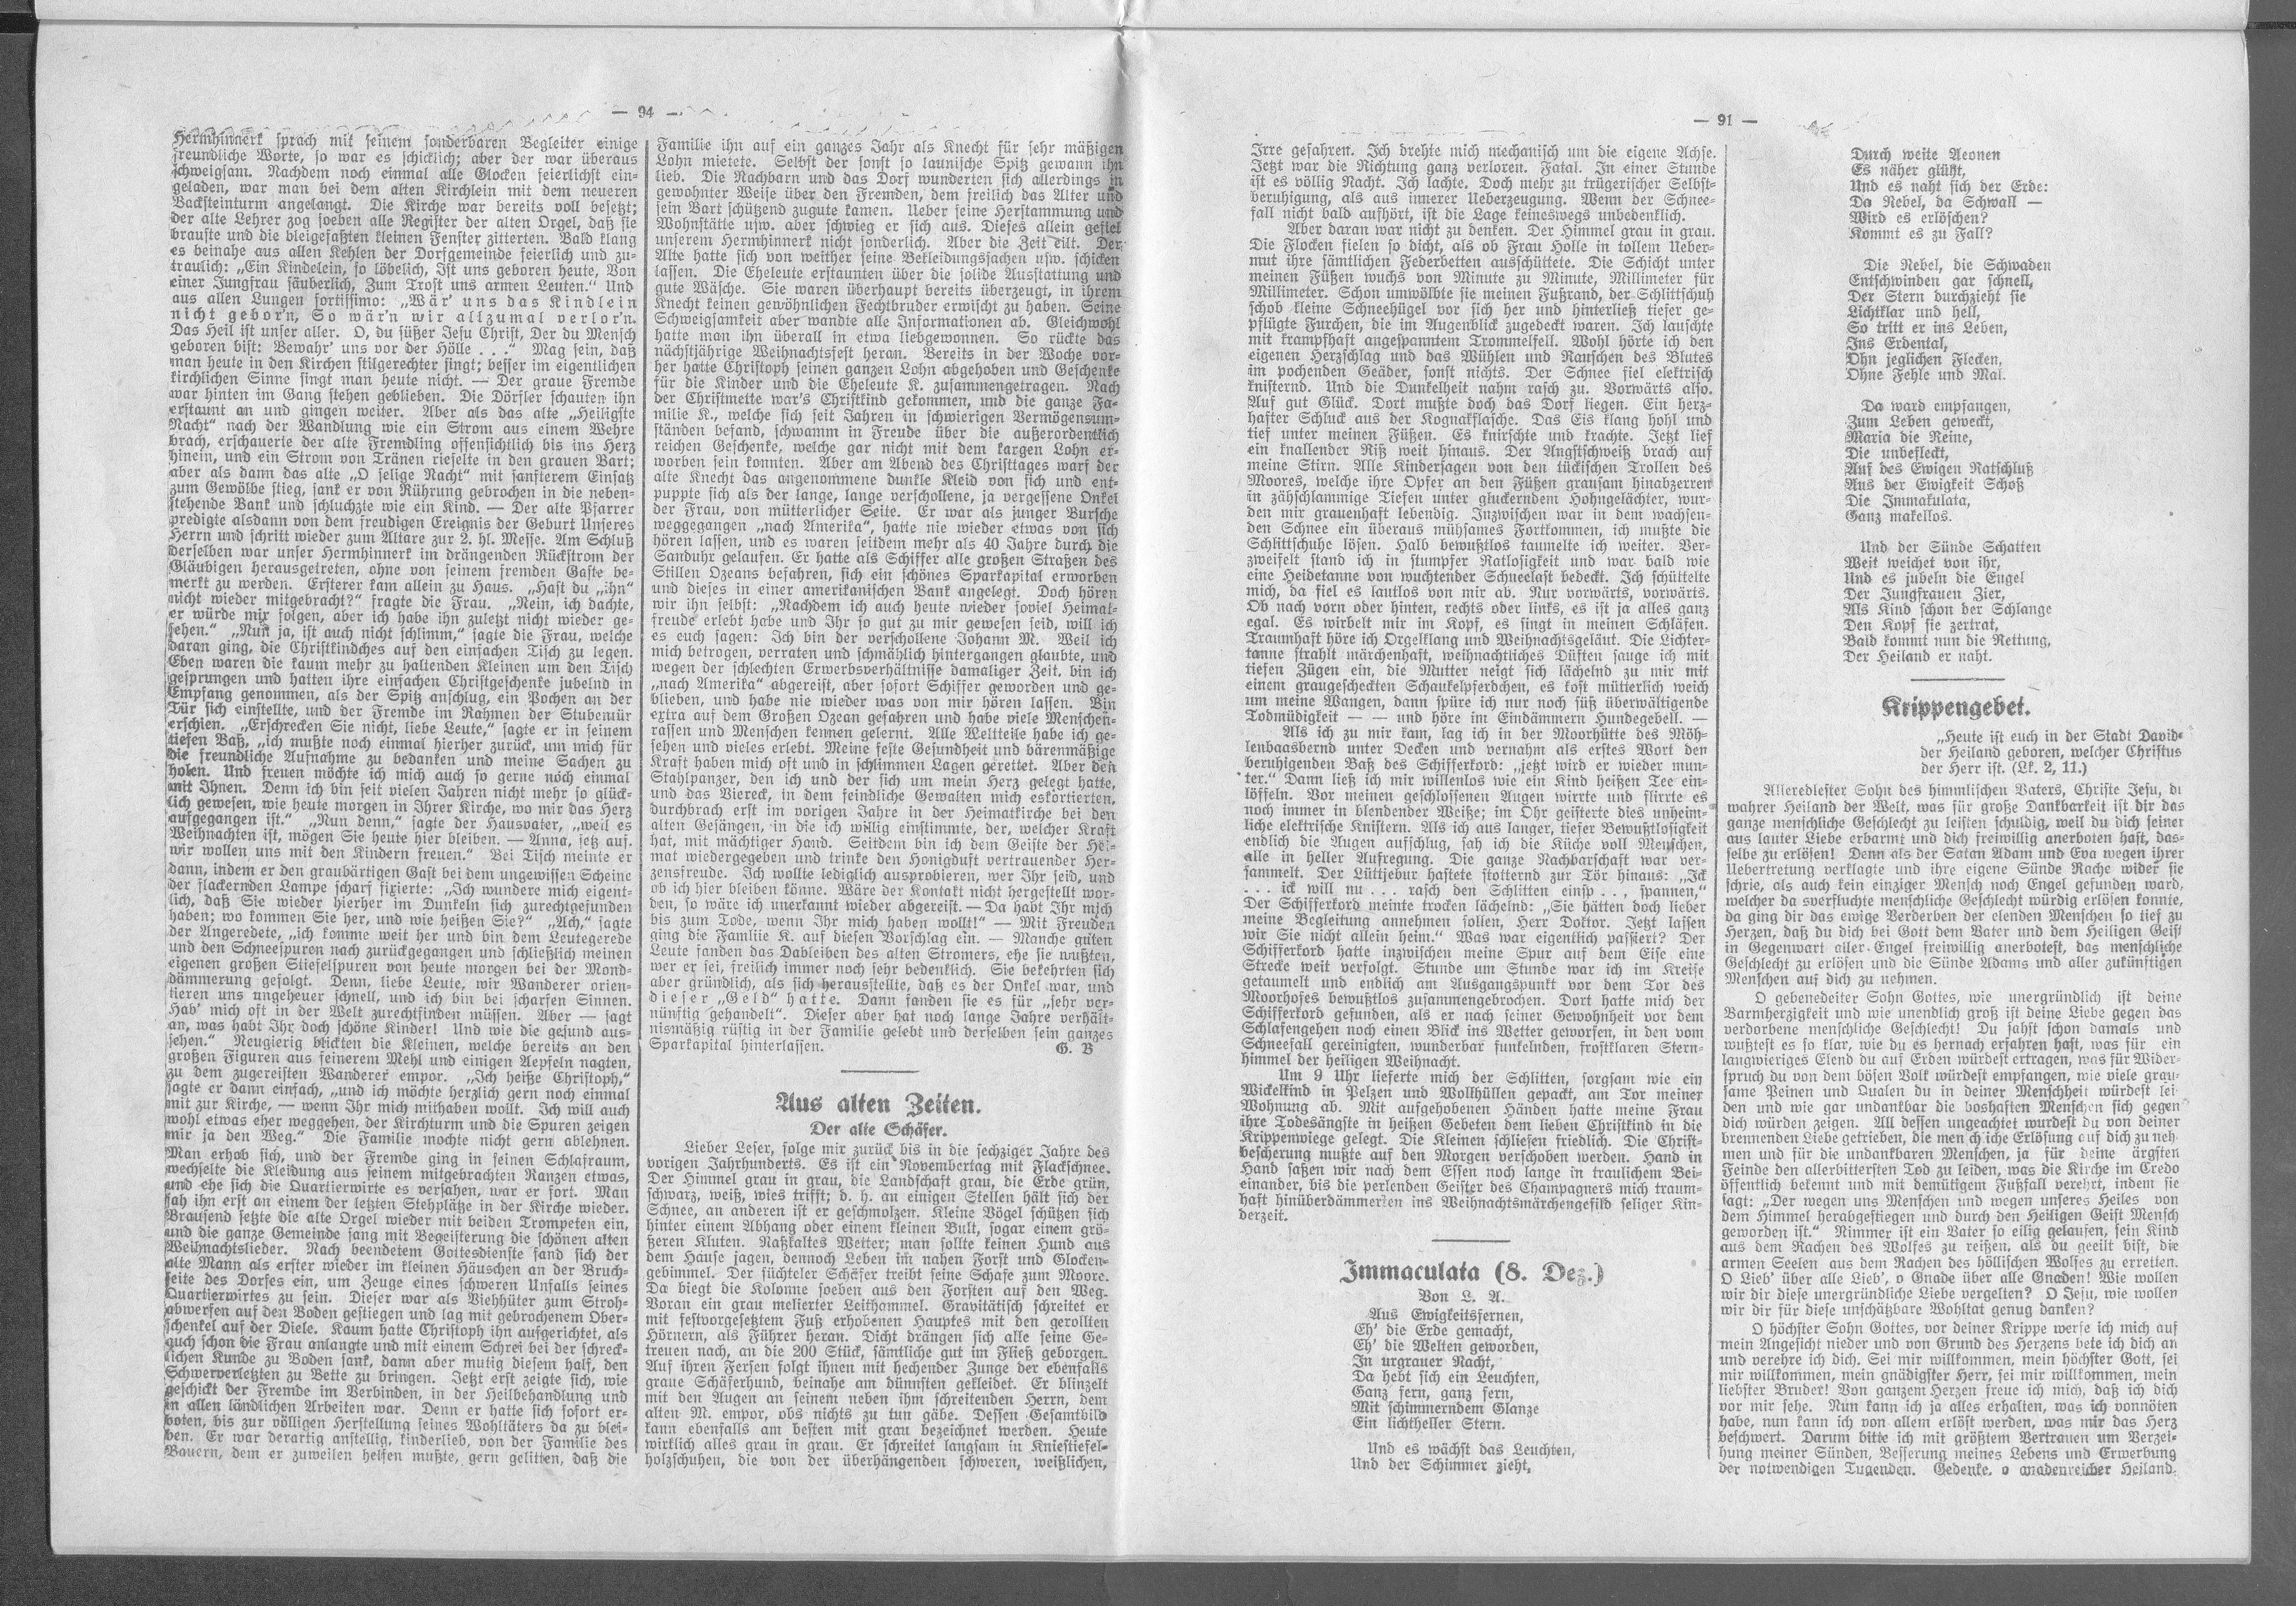 — 94 —
Hermhinnerk sprach mit seinem sonderbaren Begleiter einige
freundliche Worte, so war es schicklich; aber der war überaus
schweigsam. Nachdem noch einmal alle Glocken feierlichst ein-
geladen, war man bei dem alten Kirchlein mit dem neueren
Backsteinturm angelangt. Die Kirche war bereits voll besetzt;
der alte Lehrer zog soeben alle Register der alten Orgel, daß sie
brauste und die bleigefaßten kleinen Fenster zitterten. Bald klang
es beinahe aus allen Kehlen der Dorfgemeinde feierlich und zu-
traulich: „Ein Kindelein, so löbelich, Ist uns geboren heute, Von
einer Jungfrau säuberlich, Zum Trost uns armen Leuten.“ Und
aus allen Lungen fortissimo: „Wär' uns das Kindlein
nicht gebor'n, So wär'n wir allzumal verlor'n.
Das Heil ist unser aller. O, du süßer Jesu Christ, Der du Mensch
geboren bist: Bewahr' uns vor der Hölle . . .“ Mag sein, daß
man heute in den Kirchen stilgerechter singt; besser im eigentlichen
kirchlichen Sinne singt man heute nicht. — Der graue Fremde
war hinten im Gang stehen geblieben. Die Dörfler schauten ihn
erstaunt an und gingen weiter. Aber als das alte „Heiligste
Nacht“ nach der Wandlung wie ein Strom aus einem Wehre
brach, erschauerte der alte Fremdling offensichtlich bis ins Herz
hinein, und ein Strom von Tränen rieselte in den grauen Bart;
aber als dann das alte „O selige Nacht“ mit sanfterem Einsatz
zum Gewölbe stieg, sank er von Rührung gebrochen in die neben-
stehende Bank und schluchzte wie ein Kind. — Der alte Pfarrer
predigte alsdann von dem freudigen Ereignis der Geburt Unseres
Herrn und schritt wieder zum Altare zur 2. hl. Messe. Am Schluß
derselben war unser Hermhinnerk im drängenden Rückstrom der
Gläubigen herausgetreten, ohne von seinem fremden Gaste be-
merkt zu werden. Ersterer kam allein zu Haus. „Hast du „ihn“
nicht wieder mitgebracht?“ fragte die Frau. „Nein, ich dachte,
er würde mir folgen, aber ich habe ihn zuletzt nicht wieder ge-
sehen.“ „Nun ja, ist auch nicht schlimm,“ sagte die Frau, welche
daran ging, die Christkindches auf den einfachen Tisch zu legen.
Eben waren die kaum mehr zu haltenden Kleinen um den Tisch
gesprungen und hatten ihre einfachen Christgeschenke jubelnd in
Empfang genommen, als der Spitz anschlug, ein Pochen an der
Tür sich einstellte, und der Fremde im Rahmen der Stubentür
erschien. „Erschrecken Sie nicht, liebe Leute,“ sagte er in seinem
tiefen Baß, „ich mußte noch einmal hierher zurück, um mich für
die freundliche Aufnahme zu bedanken und meine Sachen zu
holen. Und freuen möchte ich mich auch so gerne noch einmal
mit Ihnen. Denn ich bin seit vielen Jahren nicht mehr so glück-
lich gewesen, wie heute morgen in Ihrer Kirche, wo mir das Herz
aufgegangen ist.“ „Nun denn,“ sagte der Hausvater, „weil es
Weihnachten ist, mögen Sie heute hier bleiben. — Anna, setz auf.
wir wollen uns mit den Kindern freuen.“ Bei Tisch meinte er
dann, indem er den graubärtigen Gast bei dem ungewissen Scheine
der flackernden Lampe scharf fixierte: „Ich wundere mich eigent-
lich, daß Sie wieder hierher im Dunkeln sich zurechtgefunden
haben; wo kommen Sie her, und wie heißen Sie?“ „Ach,“ sagte
der Angeredete, „ich komme weit her und bin dem Leutegerede
und den Schneespuren nach zurückgegangen und schließlich meinen
eigenen großen Stiefelspuren von heute morgen bei der Mond-
dämmerung gefolgt. Denn, liebe Leute, wir Wanderer orien-
tieren uns ungeheuer schnell, und ich bin bei scharfen Sinnen.
Hab' mich oft in der Welt zurechtfinden müssen. Aber — sagt
an, was habt Ihr doch schöne Kinder! Und wie die gesund aus-
sehen.“ Neugierig blickten die Kleinen, welche bereits an den
großen Figuren aus feinerem Mehl und einigen Aepfeln nagten,
zu dem zugereisten Wanderer empor. „Ich heiße Christoph,“
sagte er dann einfach, „und ich möchte herzlich gern noch einmal
mit zur Kirche, — wenn Ihr mich mithaben wollt. Ich will auch
wohl etwas eher weggehen, der Kirchturm und die Spuren zeigen
mir ja den Weg.“ Die Familie mochte nicht gern ablehnen.
Man erhob sich, und der Fremde ging in seinen Schlafraum,
wechselte die Kleidung aus seinem mitgebrachten Ranzen etwas,
und ehe sich die Quartierwirte es versahen, war er fort. Man
sah ihn erst an einem der letzten Stehplätze in der Kirche wieder.
Brausend setzte die alte Orgel wieder mit beiden Trompeten ein,
und die ganze Gemeinde sang mit Begeisterung die schönen alten
Weihnachtslieder. Nach beendetem Gottesdienste fand sich der
alte Mann als erster wieder im kleinen Häuschen an der Bruch-
seite des Dorfes ein, um Zeuge eines schweren Unfalls seines
Quartierwirtes zu sein. Dieser war als Viehhüter zum Stroh-
abwerfen auf den Boden gestiegen und lag mit gebrochenem Ober-
schenkel auf der Diele. Kaum hatte Christoph ihn aufgerichtet, als
auch schon die Frau anlangte und mit einem Schrei bei der schreck-
lichen Kunde zu Boden sank, dann aber mutig diesem half, den
Schwerverletzten zu Bette zu bringen. Jetzt erst zeigte sich, wie
geschickt der Fremde im Verbinden, in der Heilbehandlung und
in allen ländlichen Arbeiten war. Denn er hatte sich sofort er-
boten, bis zur völligen Herstellung seines Wohltäters da zu blei-
ben. Er war derartig anstellig, kinderlieb, von der Familie des
Bauern, dem er zuweilen helfen mußte, gern gelitten, daß die
Familie ihn auf ein ganzes Jahr als Knecht für sehr mäßigen
Lohn mietete. Selbst der sonst so launische Spitz gewann ihn
lieb. Die Nachbarn und das Dorf wunderten sich allerdings in
gewohnter Weise über den Fremden, dem freilich das Alter und
sein Bart schützend zugute kamen. Ueber seine Herstammung und
Wohnstätte usw. aber schwieg er sich aus. Dieses allein gefiel
unserem Hermhinnerk nicht sonderlich. Aber die Zeit eilt. Der
Alte hatte sich von weither seine Bekleidungssachen usw. schicken
lassen. Die Eheleute erstaunten über die solide Ausstattung und
gute Wäsche. Sie waren überhaupt bereits überzeugt, in ihrem
Knecht keinen gewöhnlichen Fechtbruder erwischt zu haben. Seine
Schweigsamkeit aber wandte alle Informationen ab. Gleichwohl
hatte man ihn überall in etwa liebgewonnen. So rückte das
nächstjährige Weihnachtsfest heran. Bereits in der Woche vor-
her hatte Christoph seinen ganzen Lohn abgehoben und Geschenke
für die Kinder und die Eheleute K. zusammengetragen. Nach
der Christmette war's Christkind gekommen, und die ganze Fa-
milie K., welche sich seit Jahren in schwierigen Vermögensum-
ständen befand, schwamm in Freude über die außerordentlich
reichen Geschenke, welche gar nicht mit dem kargen Lohn er-
worben sein konnten. Aber am Abend des Christtages warf der
alte Knecht das angenommene dunkle Kleid von sich und ent-
puppte sich als der lange, lange verschollene, ja vergessene Onkel
der Frau, von mütterlicher Seite. Er war als junger Bursche
weggegangen „nach Amerika“, hatte nie wieder etwas von sich
hören lassen, und es waren seitdem mehr als 40 Jahre durch die
Sanduhr gelaufen. Er hatte als Schiffer alle großen Straßen des
Stillen Ozeans befahren, sich ein schönes Sparkapital erworben
und dieses in einer amerikanischen Bank angelegt. Doch hören
wir ihn selbst: „Nachdem ich auch heute wieder soviel Heimat-
freude erlebt habe und Ihr so gut zu mir gewesen seid, will ich
es euch sagen: Ich bin der verschollene Johann M. Weil ich
mich betrogen, verraten und schmählich hintergangen glaubte, und
wegen der schlechten Erwerbsverhältnisse damaliger Zeit, bin ich
„nach Amerika“ abgereist, aber sofort Schiffer geworden und ge-
blieben, und habe nie wieder was von mir hören lassen. Bin
extra auf dem Großen Ozean gefahren und habe viele Menschen-
rassen und Menschen kennen gelernt. Alle Weltteile habe ich ge-
sehen und vieles erlebt. Meine feste Gesundheit und bärenmäßige
Kraft haben mich oft und in schlimmen Lagen gerettet. Aber den
Stahlpanzer, den ich und der sich um mein Herz gelegt hatte,
und das Viereck, in dem feindliche Gewalten mich eskortierten,
durchbrach erst im vorigen Jahre in der Heimatkirche bei den
alten Gesängen, in die ich willig einstimmte, der, welcher Kraft
hat, mit mächtiger Hand. Seitdem bin ich dem Geiste der Hei-
mat wiedergegeben und trinke den Honigduft vertrauender Her-
zensfreude. Ich wollte lediglich ausprobieren, wer Ihr seid, und
ob ich hier bleiben könne. Wäre der Kontakt nicht hergestellt wor-
den, so wäre ich unerkannt wieder abgereist. — Da habt Ihr mich
bis zum Tode, wenn Ihr mich haben wollt!“ — Mit Freuden
ging die Familie K. auf diesen Vorschlag ein. — Manche guten
Leute fanden das Dableiben des alten Stromers, ehe sie wußten,
wer er sei, freilich immer noch sehr bedenklich. Sie bekehrten sich
aber gründlich, als sich herausstellte, daß es der Onkel war, und
dieser „Geld“ hatte. Dann fanden sie es für „sehr ver-
nünftig gehandelt“. Dieser aber hat noch lange Jahre verhält-
nismäßig rüstig in der Familie gelebt und derselben sein ganzes
Sparkapital hinterlassen. G. B
Aus alten Zeiten.
Der alte Schäfer.
Lieber Leser, folge mir zurück bis in die sechziger Jahre des
vorigen Jahrhunderts. Es ist ein Novembertag mit Flackschnee.
Der Himmel grau in grau, die Landschaft grau, die Erde grün,
schwarz, weiß, wies trifft; d. h. an einigen Stellen hält sich der
Schnee, an anderen ist er geschmolzen. Kleine Vögel schützen sich
hinter einem Abhang oder einem kleinen Bult, sogar einem grö-
ßeren Kluten. Naßkaltes Wetter; man sollte keinen Hund aus
dem Hause jagen, dennoch Leben im nahen Forst und Glocken-
gebimmel. Der süchteler Schäfer treibt seine Schafe zum Moore.
Da biegt die Kolonne soeben aus den Forsten auf den Weg.
Voran ein grau melierter Leithammel. Gravitätisch schreitet er
mit festvorgesetztem Fuß erhobenen Hauptes mit den gerollten
Hörnern, als Führer heran. Dicht drängen sich alle seine Ge-
treuen nach, an die 200 Stück, sämtliche gut im Fließ geborgen.
Auf ihren Fersen folgt ihnen mit hechender Zunge der ebenfalls
graue Schäferhund, beinahe am dünnsten gekleidet. Er blinzelt
mit den Augen an seinem neben ihm schreitenden Herrn, dem
alten M. empor, obs nichts zu tun gäbe. Dessen Gesamtbild
kann ebenfalls am besten mit grau bezeichnet werden. Heute
wirklich alles grau in grau. Er schreitet langsam in Kniestiefel-
holzschuhen, die von der überhängenden schweren, weißlichen,
— 91 —
Irre gefahren. Ich drehte mich mechanisch um die eigene Achse.
Jetzt war die Richtung ganz verloren. Fatal. In einer Stunde
ist es völlig Nacht. Ich lachte. Doch mehr zu trügerischer Selbst-
beruhigung, als aus innerer Ueberzeugung. Wenn der Schnee-
fall nicht bald aufhört, ist die Lage keineswegs unbedenklich.
Aber daran war nicht zu denken. Der Himmel grau in grau.
Die Flocken fielen so dicht, als ob Frau Holle in tollem Ueber-
mut ihre sämtlichen Federbetten ausschüttete. Die Schicht unter
meinen Füßen wuchs von Minute zu Minute, Millimeter für
Millimeter. Schon umwölbte sie meinen Fußrand, der Schlittschuh
schob kleine Schneehügel vor sich her und hinterließ tiefer ge-
pflügte Furchen, die im Augenblick zugedeckt waren. Ich lauschte
mit krampfhaft angespanntem Trommelfell. Wohl hörte ich den
eigenen Herzschlag und das Wühlen und Rauschen des Blutes
im pochenden Geäder, sonst nichts. Der Schnee fiel elektrisch
knisternd. Und die Dunkelheit nahm rasch zu. Vorwärts also.
Auf gut Glück. Dort mußte doch das Dorf liegen. Ein herz-
hafter Schluck aus der Kognakflasche. Das Eis klang hohl und
tief unter meinen Füßen. Es knirschte und krachte. Jetzt lief
ein knallender Riß weit hinaus. Der Angstschweiß brach auf
meine Stirn. Alle Kindersagen von den tückischen Trollen des
Moores, welche ihre Opfer an den Füßen grausam hinabzerren
in zähschlammige Tiefen unter gluckerndem Hohngelächter, wur-
den mir grauenhaft lebendig. Inzwischen war in dem wachsen-
den Schnee ein überaus mühsames Fortkommen, ich mußte die
Schlittschuhe lösen. Halb bewußtlos taumelte ich weiter. Ver-
zweifelt stand ich in stumpfer Ratlosigkeit und war bald wie
eine Heidetanne von wuchtender Schneelast bedeckt. Ich schüttelte
mich, da fiel es lautlos von mir ab. Nur vorwärts, vorwärts.
Ob nach vorn oder hinten, rechts oder links, es ist ja alles ganz
egal. Es wirbelt mir im Kopf, es singt in meinen Schläfen.
Traumhaft höre ich Orgelklang und Weihnachtsgeläut. Die Lichter-
tanne strahlt märchenhaft, weihnachtliches Düften sauge ich mit
tiefen Zügen ein, die Mutter neigt sich lächelnd zu mir mit
einem graugescheckten Schaukelpferdchen, es kost mütterlich weich
um meine Wangen, dann spüre ich nur noch süß überwältigende
Todmüdigkeit — — und höre im Eindämmern Hundegebell. —
Als ich zu mir kam, lag ich in der Moorhütte des Möh-
lenbaasbernd unter Decken und vernahm als erstes Wort den
beruhigenden Baß des Schifferkord: „jetzt wird er wieder mun-
ter.“ Dann ließ ich mir willenlos wie ein Kind heißen Tee ein-
löffeln. Vor meinen geschlossenen Augen wirrte und flirrte es
noch immer in blendender Weiße; im Ohr geisterte dies unheim-
liche elektrische Knistern. Als ich aus langer, tiefer Bewußtlosigkeit
endlich die Augen aufschlug, sah ich die Küche voll Menschen,
alle in heller Aufregung. Die ganze Nachbarschaft war ver-
sammelt. Der Lüttjebur hastete stotternd zur Tör hinaus: „Ick
. . . ick will nu . . . rasch den Schlitten einsp . . ., spannen,“
Der Schifferkord meinte trocken lächelnd: „Sie hätten doch lieber
meine Begleitung annehmen sollen, Herr Doktor. Jetzt lassen
wir Sie nicht allein heim.“ Was war eigentlich passiert? Der
Schifferkord hatte inzwischen meine Spur auf dem Eise eine
Strecke weit verfolgt. Stunde um Stunde war ich im Kreise
getaumelt und endlich am Ausgangspunkt vor dem Tor des
Moorhofes bewußtlos zusammengebrochen. Dort hatte mich der
Schifferkord gefunden, als er nach seiner Gewohnheit vor dem
Schlafengehen noch einen Blick ins Wetter geworfen, in den vom
Schneefall gereinigten, wunderbar funkelnden, frostklaren Stern-
himmel der heiligen Weihnacht.
Um 9 Uhr lieferte mich der Schlitten, sorgsam wie ein
Wickelkind in Pelzen und Wollhüllen gepackt, am Tor meiner
Wohnung ab. Mit aufgehobenen Händen hatte meine Frau
ihre Todesängste in heißen Gebeten dem lieben Christkind in die
Krippenwiege gelegt. Die Kleinen schliefen friedlich. Die Christ-
bescherung mußte auf den Morgen verschoben werden. Hand in
Hand saßen wir nach dem Essen noch lange in traulichem Bei-
einander, bis die perlenden Geister des Champagners mich traum-
haft hinüberdämmerten ins Weihnachtsmärchengefild seliger Kin-
derzeit.
Immaculata (8. Dez.)
Von L. A.
Aus Ewigkeitsfernen,
Eh' die Erde gemacht,
Eh' die Welten geworden,
In urgrauer Nacht,
Da hebt sich ein Leuchten,
Ganz fern, ganz fern,
Mit schimmerndem Glanze
Ein lichtheller Stern.
Und es wächst das Leuchten,
Und der Schimmer zieht,
Durch weite Aeonen
Es näher glüht,
Und es naht sich der Erde:
Da Nebel, da Schwall —
Wird es erlöschen?
Kommt es zu Fall?
Die Nebel, die Schwaden
Entschwinden gar schnell,
Der Stern durchzieht sie
Lichtklar und hell,
So tritt er ins Leben,
Ins Erdental,
Ohn jeglichen Flecken,
Ohne Fehle und Mal.
Da ward empfangen,
Zum Leben geweckt,
Maria die Reine,
Die unbefleckt,
Auf des Ewigen Ratschluß
Aus der Ewigkeit Schoß
Die Immakulata,
Ganz makellos.
Und der Sünde Schatten
Weit weichet von ihr,
Und es jubeln die Engel
Der Jungfrauen Zier,
Als Kind schon der Schlange
Den Kopf sie zertrat,
Bald kommt nun die Rettung,
Der Heiland er naht.
Krippengebet.
„Heute ist euch in der Stadt David-
der Heiland geboren, welcher Christus
der Herr ist. (Lk. 2, 11.)
Alleredlester Sohn des himmlischen Vaters, Christe Jesu, du
wahrer Heiland der Welt, was für große Dankbarkeit ist dir das
ganze menschliche Geschlecht zu leisten schuldig, weil du dich seiner
aus lauter Liebe erbarmt und dich freiwillig anerboten hast, das-
selbe zu erlösen! Denn als der Satan Adam und Eva wegen ihrer
Uebertretung verklagte und ihre eigene Sünde Rache wider sie
schrie, als auch kein einziger Mensch noch Engel gefunden ward,
welcher da sverfluchte menschliche Geschlecht würdig erlösen konnte,
da ging dir das ewige Verderben der elenden Menschen so tief zu
Herzen, daß du dich bei Gott dem Vater und dem Heiligen Geist
in Gegenwart aller Engel freiwillig anerbotest, das menschliche
Geschlecht zu erlösen und die Sünde Adams und aller zukünftigen
Menschen auf dich zu nehmen.
O gebenedeiter Sohn Gottes, wie unergründlich ist deine
Barmherzigkeit und wie unendlich groß ist deine Liebe gegen das
verdorbene menschliche Geschlecht! Du sahst schon damals und
wußtest es so klar, wie du es hernach erfahren hast, was für ein
langwieriges Elend du auf Erden würdest ertragen, was für Wider-
spruch du von dem bösen Volk würdest empfangen, wie viele grau-
same Peinen und Qualen du in deiner Menschheit würdest lei-
den und wie gar undankbar die boshaften Menschen sich gegen
dich würden zeigen. All dessen ungeachtet wurdest du von deiner
brennenden Liebe getrieben, die menschliche Erlösung auf dich zu neh-
men und für die undankbaren Menschen, ja für deine ärgsten
Feinde den allerbittersten Tod zu leiden, was die Kirche im Credo
öffentlich bekennt und mit demütigem Fußfall verehrt, indem sie
sagt: „Der wegen uns Menschen und wegen unseres Heiles von
dem Himmel herabgestiegen und durch den Heiligen Geist Mensch
geworden ist.“ Nimmer ist ein Vater so eilig gelaufen, sein Kind
aus dem Rachen des Wolfes zu reißen, als du geeilt bist, die
armen Seelen aus dem Rachen des höllischen Wolfes zu erretten.
O Lieb' über alle Lieb', o Gnade über alle Gnaden! Wie wollen
wir dir diese unergründliche Liebe vergelten? O Jesu, wie wollen
wir dir für diese unschätzbare Wohltat genug danken?
O höchster Sohn Gottes, vor deiner Krippe werfe ich mich auf
mein Angesicht nieder und von Grund des Herzens bete ich dich an
und verehre ich dich. Sei mir willkommen, mein höchster Gott, sei
mir willkommen, mein gnädigster Herr, sei mir willkommen, mein
liebster Bruder! Von ganzem Herzen freue ich mich, daß ich dich
vor mir sehe. Nun kann ich ja alles erhalten, was ich vonnöten
habe, nun kann ich von allem erlöst werden, was mir das Herz
beschwert. Darum bitte ich mit größtem Vertrauen um Verzei-
hung meiner Sünden, Besserung meines Lebens und Erwerbung
der notwendigen Tugenden. Gedenke, o gnadenreicher Heiland,